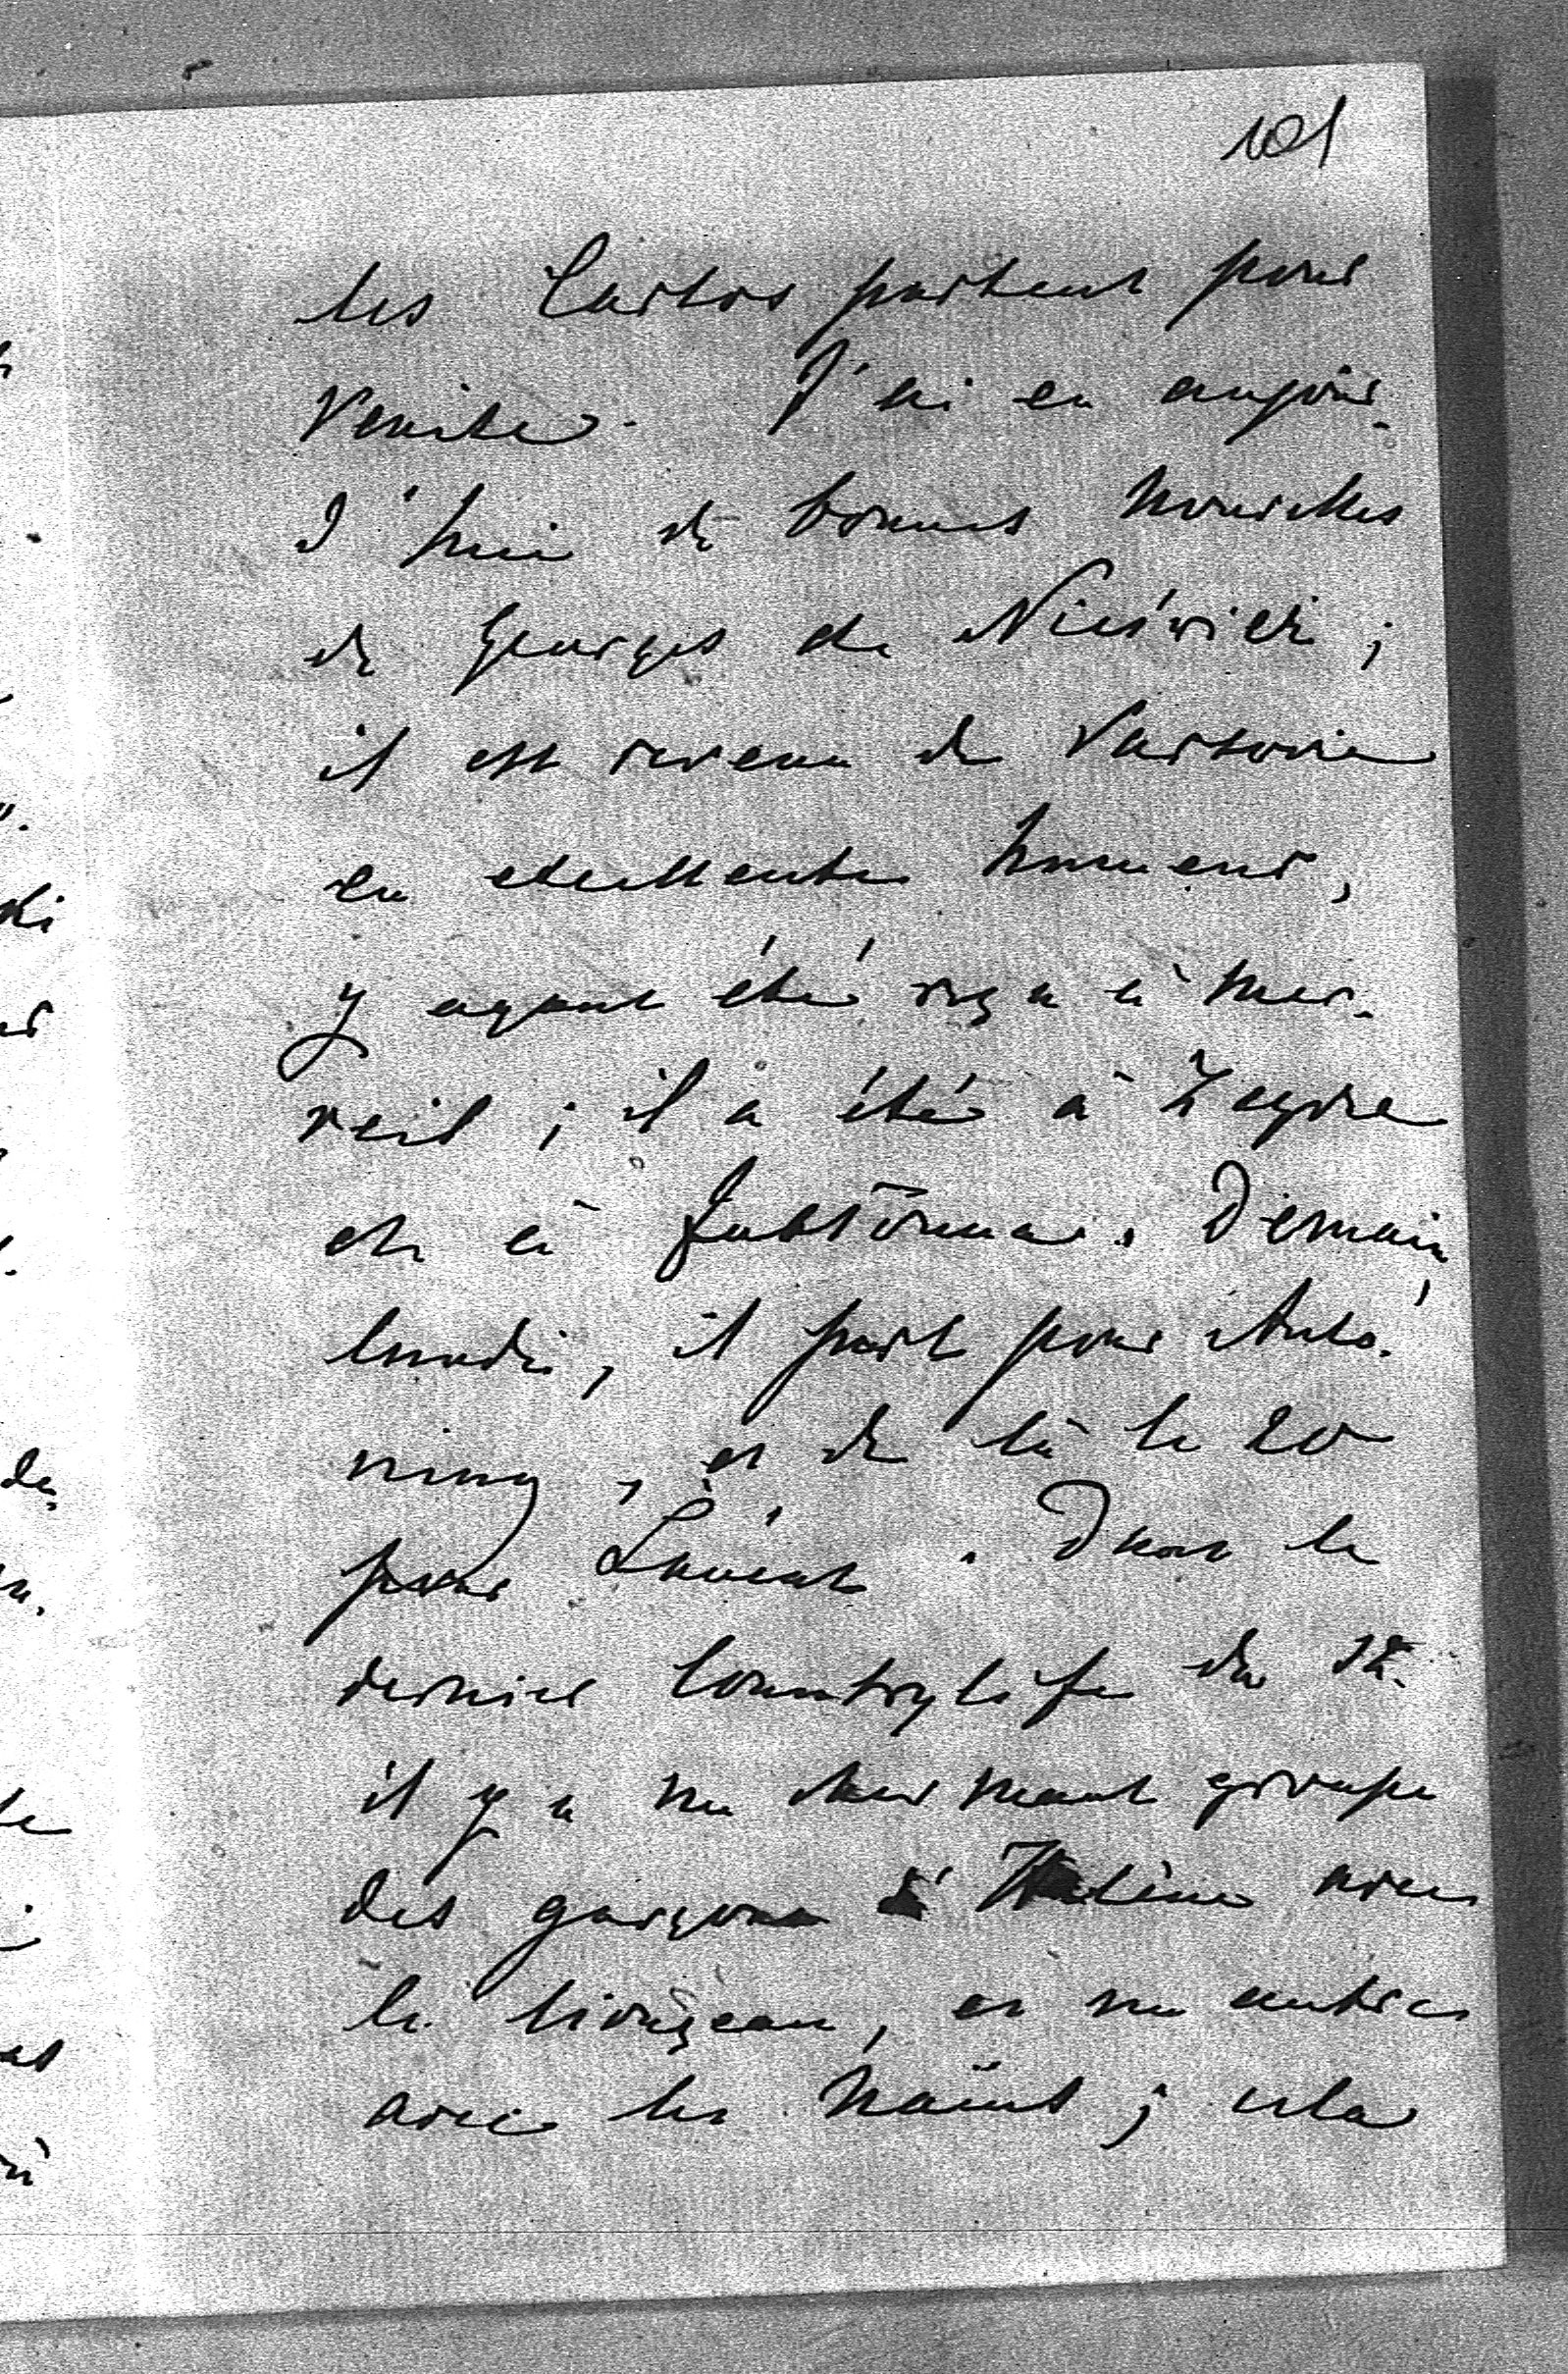 101
les Carlos partent pour
Venise. J'ai eu aujour-
d'hui de bonnes nouvelles
de Georges de Nieświch ;
il est revenu de Varsovie
en excellente humeur,
y ayant été reçu à mer-
veil ; il a été à Zegrze
et à Jabłonna. Demain,
lundi, il part pour Anto-
niny, et de là le 20
pour Łańcut. Dans le
dernier Countrylife du 12.
il y a un charmant groupe
des garçons d' Hélène avec
le lionçeau, et un autre
avec les nains ; cela